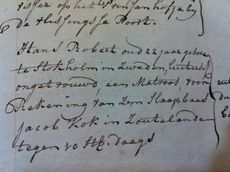 de Vlissingse Poort.
Hans Robert oud 22 jaar gebore
te Stokholm in Zweeden, Luters
ongetrouwd, een Matroos, voor
Rekening van Zyn Slaapbaas
Jacob Kok in Zoutelande
tegen 10 Stb. Daags